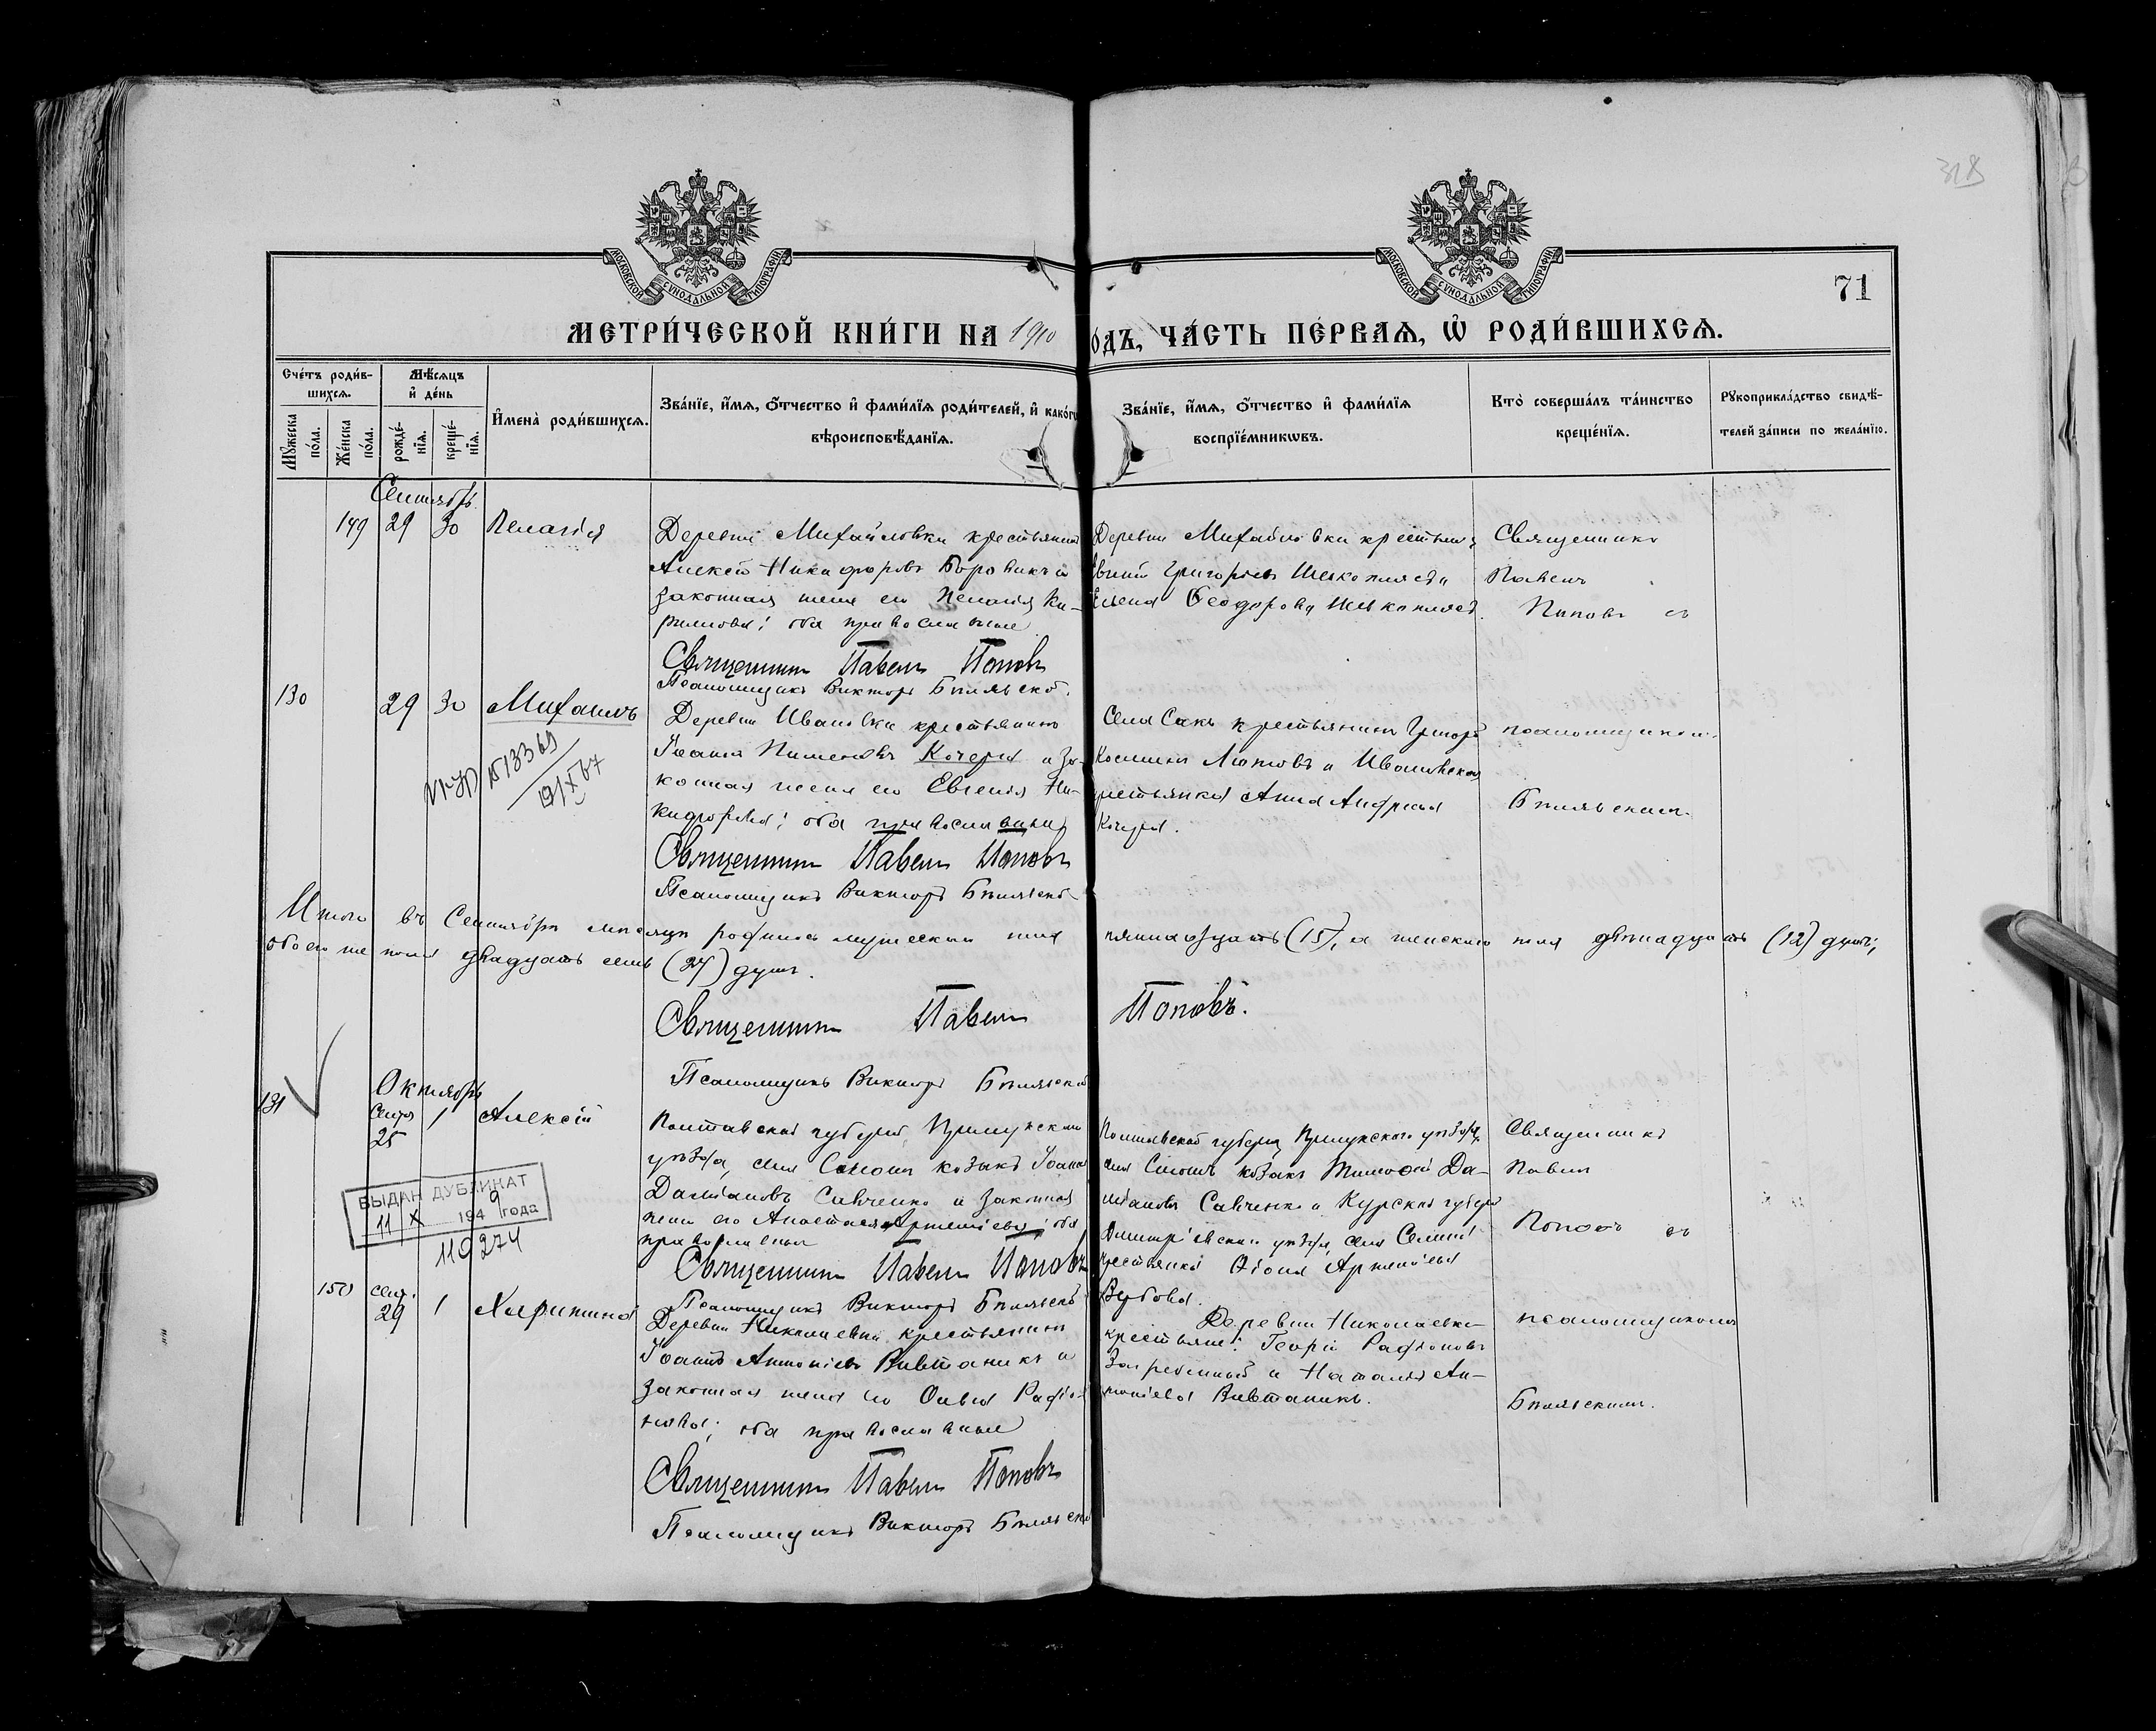 318
МОСКОВСКОЙ СѴНОДАЛЬНОЙ ТИПОГРАФІИ
МОСКОВСКОЙ СѴНОДАЛЬНОЙ ТИПОГРАФІИ
71
МЕТРИ́ЧЕСКОЙ КНИ́ГИ НА 1910
ОДЪ, ЧА́СТЬ ПЕ́РВАѦ, Ѡ҆ РОДИ́ВШИХСѦ.
Сче́тъ роди́в-
шихсѧ.
Мꙋ́жеска по́ла.
Же́нска по́ла.
Мѣ́сѧцъ
и҆ де́нь
рожде́-
нїѧ.
креще́-
нїѧ.
И҆мена̀ роди́вшихсѧ.
Зва́нїе, и҆́мѧ, о҆́тчество и҆ фами́лїѧ роди́телей, и҆ како́гѡ
вѣроисповѣ́данїѧ.
Зва́нїе, и҆́мѧ, о҆́тчество и҆ фами́лїѧ
воспрїе́мникѡвъ.
Кто̀ соверша́лъ та́инство
креще́нїѧ.
Рꙋкоприкла́дство свидѣ́-
телей за́писи по жела́нїю.
Сентябрь
149 29 30 Пелагія
Деревни Михайловки крестьянинъ
Алексѣй Никифоровъ Боровикъ и
законная жена его Пелагія Ки-
рилова; оба православные
Священникъ Павелъ Поповъ
Псаломщикъ Викторъ Бѣлявскій
Деревни Михайловки крестьяне
Григорьевъ
Ѳеодорова
Священникъ
Павелъ
Поповъ съ
130 29 30 Михаилъ
Деревни Ивановки крестьянинъ
Іоаннъ Пименовъ Кочерга и за-
конная жена его Евгенія Ни-
кифорова; оба православные
Священникъ Павелъ Поповъ
Псаломщикъ Викторъ Бѣлявскій
Села Сакъ крестьянинъ Григорій
Косминъ Лютовъ и Ивановская
крестьянка Анна
Кочерга.
псаломщикомъ
Бѣлявскимъ.
513369
9/X 67
Итого въ Сентябрѣ мѣсяцѣ родилось мужескаго пола
пятнадцать (15), а женскаго пола двѣнадцать (12) душъ;
обоего же пола двадцать семь (27) душъ.
Священникъ Павелъ Поповъ.
Псаломщикъ Викторъ Бѣлявскій
Октябрь
131 Сент. 25 1 Алексій
Полтавской губерніи, Прилукскаго
уѣзда, села козакъ Іоаннъ
Даміановъ Савченко и законная
жена его Анастасія Артеміева; оба
православные
Священникъ Павелъ Поповъ
Псаломщикъ Викторъ Бѣлявскій
Полтавской губерніи Прилукскаго уѣзда,
села козакъ Тимоѳей Да-
міановъ Савченко и Курской губерніи
Дмитріевскаго уѣзда, села
крестьянка Артеміева
Священникъ
Павелъ
Поповъ съ
ВЫДАН ДУБЛИКАТ
11/X 1949 года
110274
150 Сент. 29 1 Харитина
Деревни Николаевки крестьянинъ
Іоаннъ Антоніевъ Вивтаникъ и
законная жена его Ольга Радіо-
нова; оба православные
Священникъ Павелъ Поповъ
Псаломщикъ Викторъ Бѣлявскій
Деревни Николаевки
крестьяне: Георгій Радіоновъ
и Наталія Ан-
тоніева Вивтаникъ.
псаломщикомъ
Бѣлявскимъ.